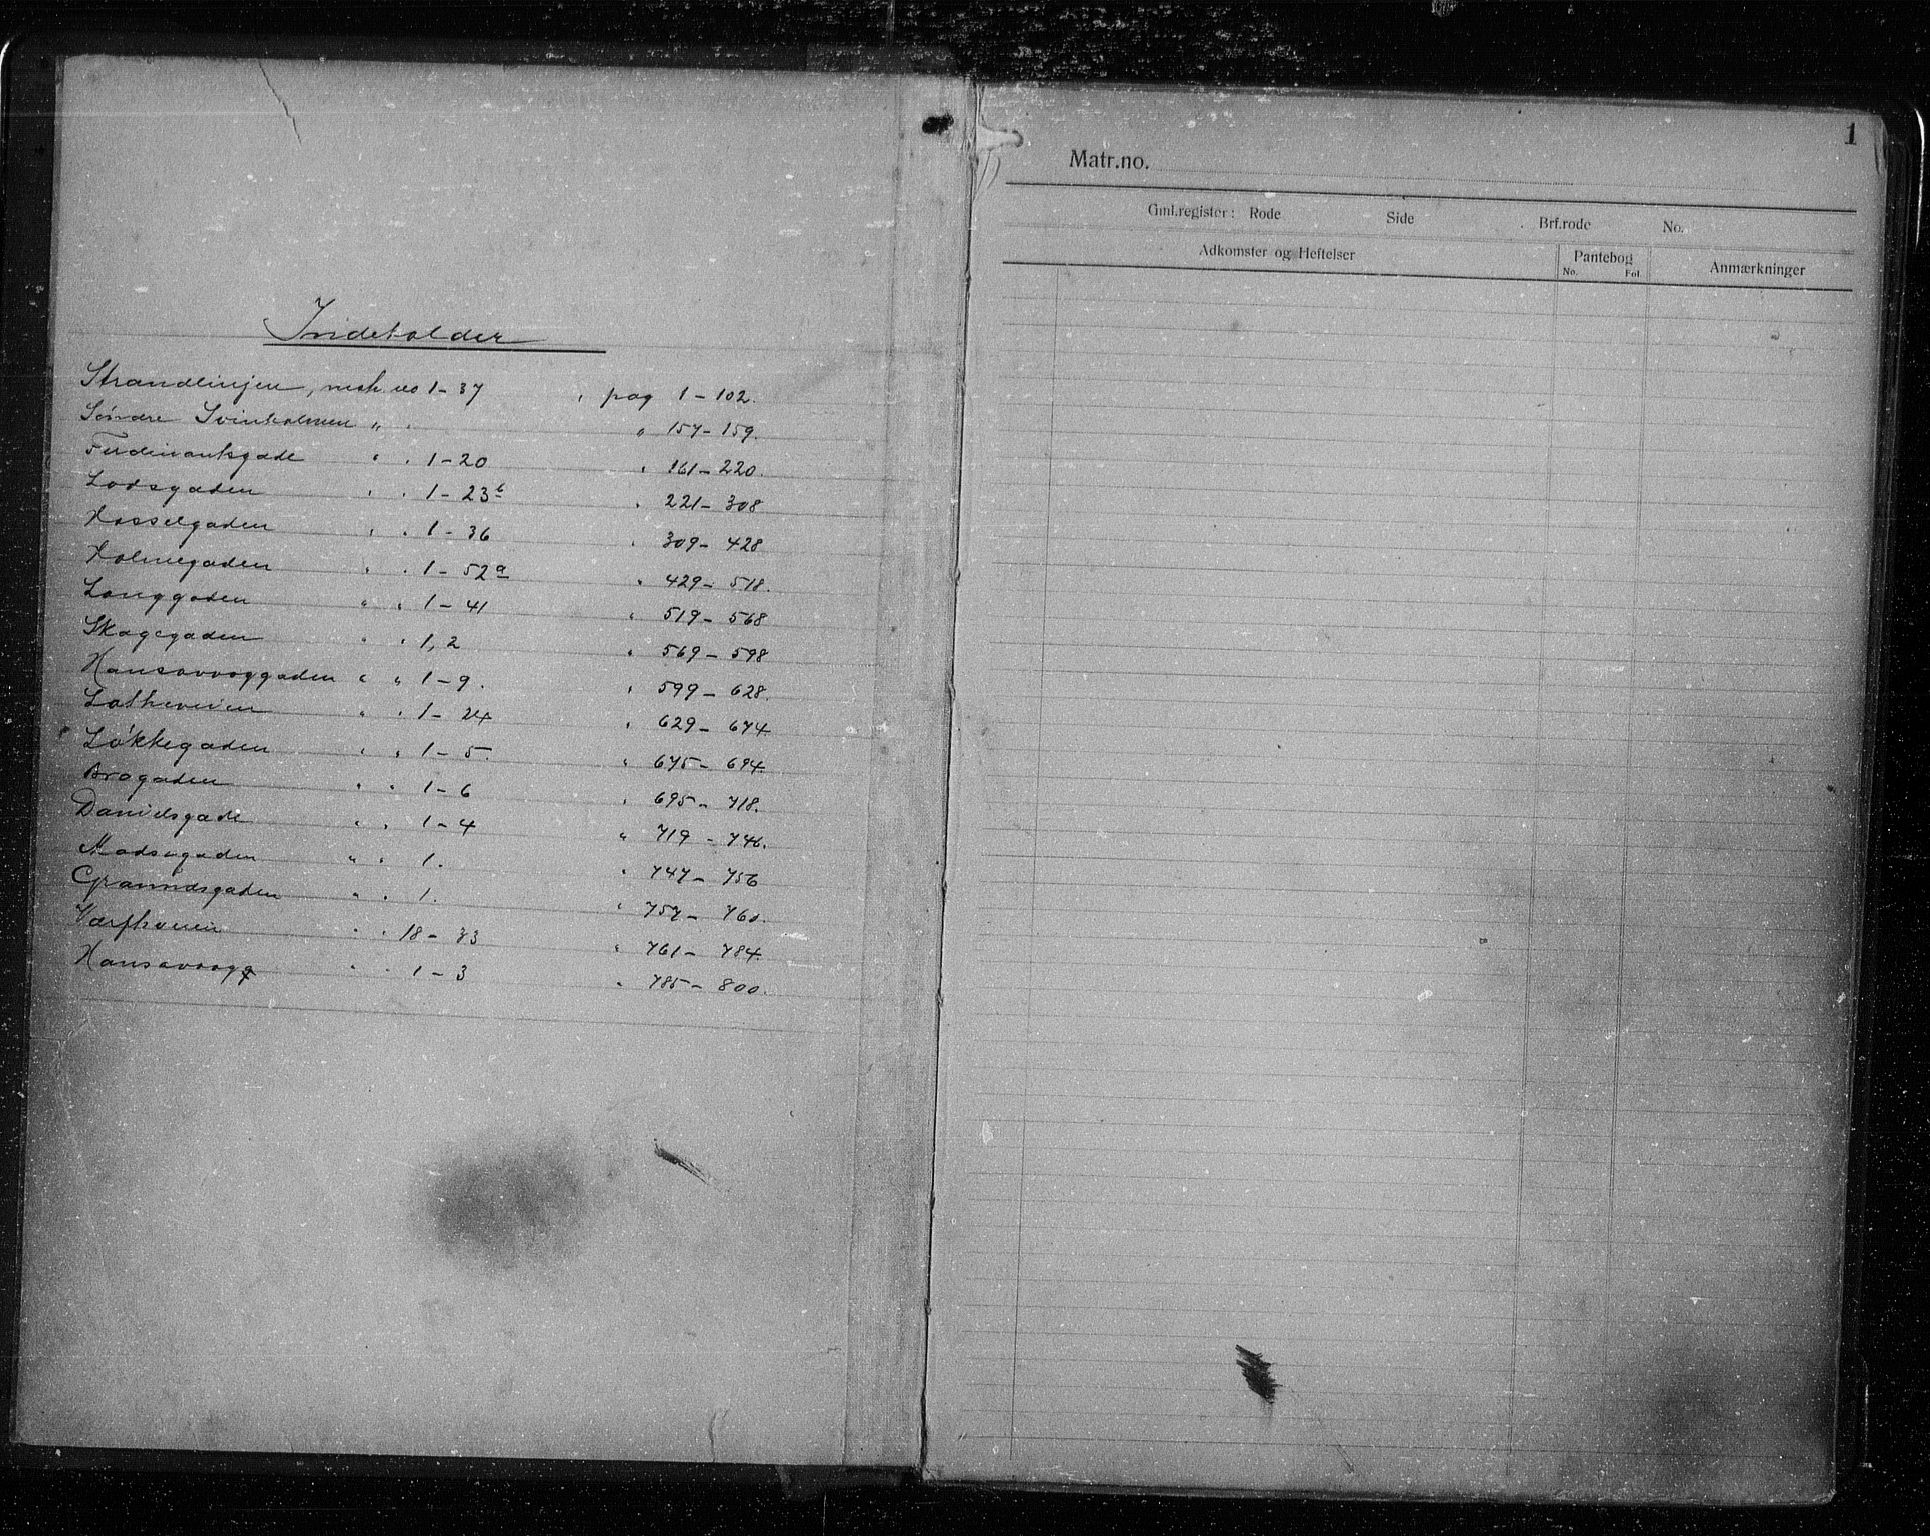 Indeholder
Strandlinjen, matr. no 1 - 37 " pag 1 - 102.
Søndre Svinholmen " " " 157 - 159.
Ferdinantsgade " " 1 - 20 " 161 - 220.
Lodsgaden " " 1 - 23b " 221 - 308
Hasselgaden " " 1 - 36 " 309 - 428
Holmegaden " " 1 - 52a " 429 - 518.
Langgaden " " 1 - 41 " 519 - 568
Skagegaden " " 1, 2 " 569 - 598
Hansavaaggaden " " 1 - 9. " 599 - 628.
Lotheveien " " 1 - 24 " 629 - 674
Løkkegaden " " 1 - 5. " 675 - 694.
Bragaden " " 1 - 6 " 695 - 718.
Danielsgade " " 1 - 4 " 719 - 746.
Madsagaden " " 1. " 747 - 756
" " 1. " 757 - 760.
Værftsveien " " 18 - 33 " 761 - 784.
Hansavaagg " " 1 - 3 " 785 - 800.
1
Matr.no.
Gml.register: Rode Side Brf.rode No.
Adkomster og Heftelser Pantebog Anmærkninger
No. Fol.